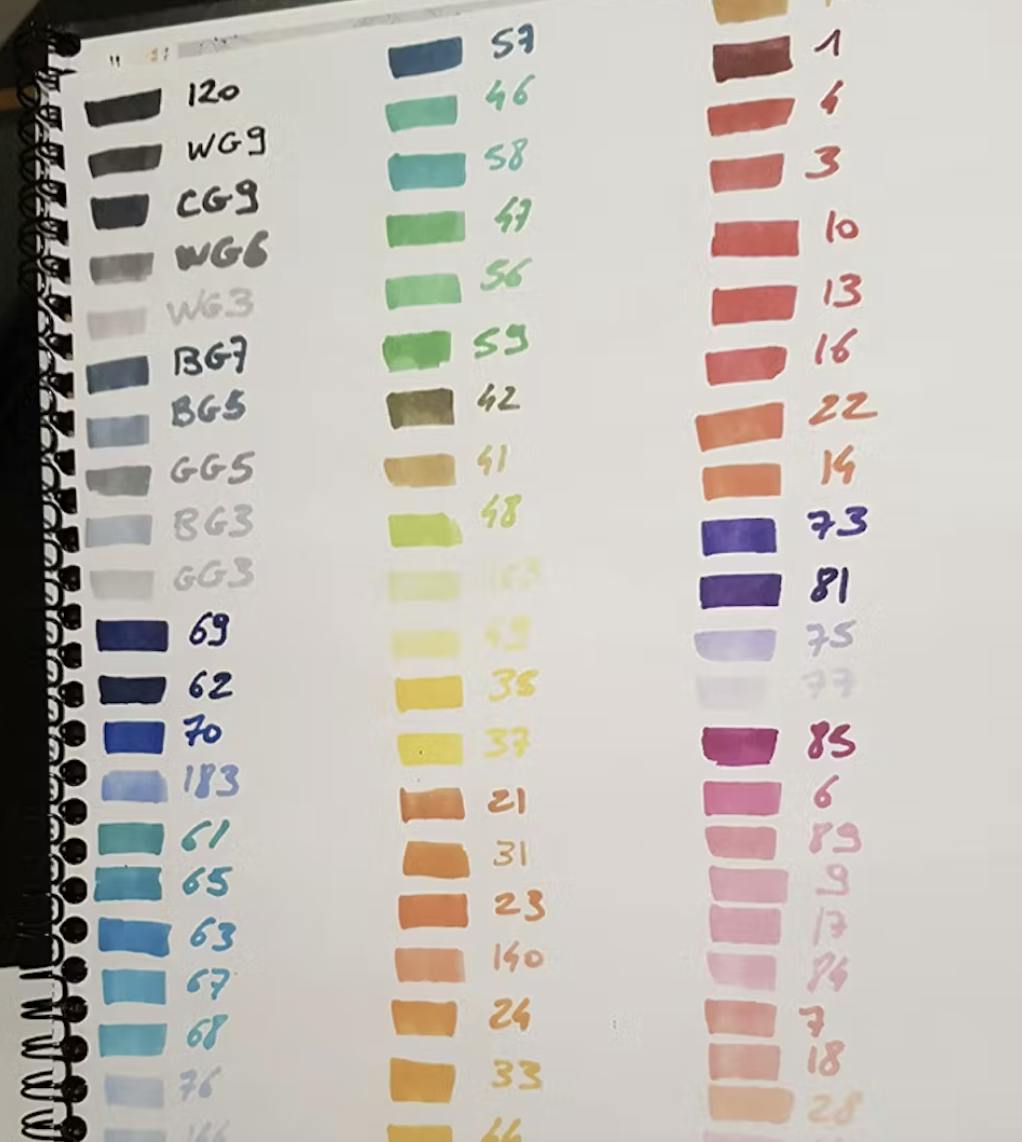 120
WG9
CG9
WG6
WG3
BG7
BG5
GG5
BG3
GG3
69
62
70
183
61
65
63
67
68
76
57
46
58
47
56
59
42
41
48
163
49
35
37
21
31
23
140
24
33
44
1
4
3
10
13
16
22
14
73
81
75
77
85
6
89
9
17
84
7
18
28